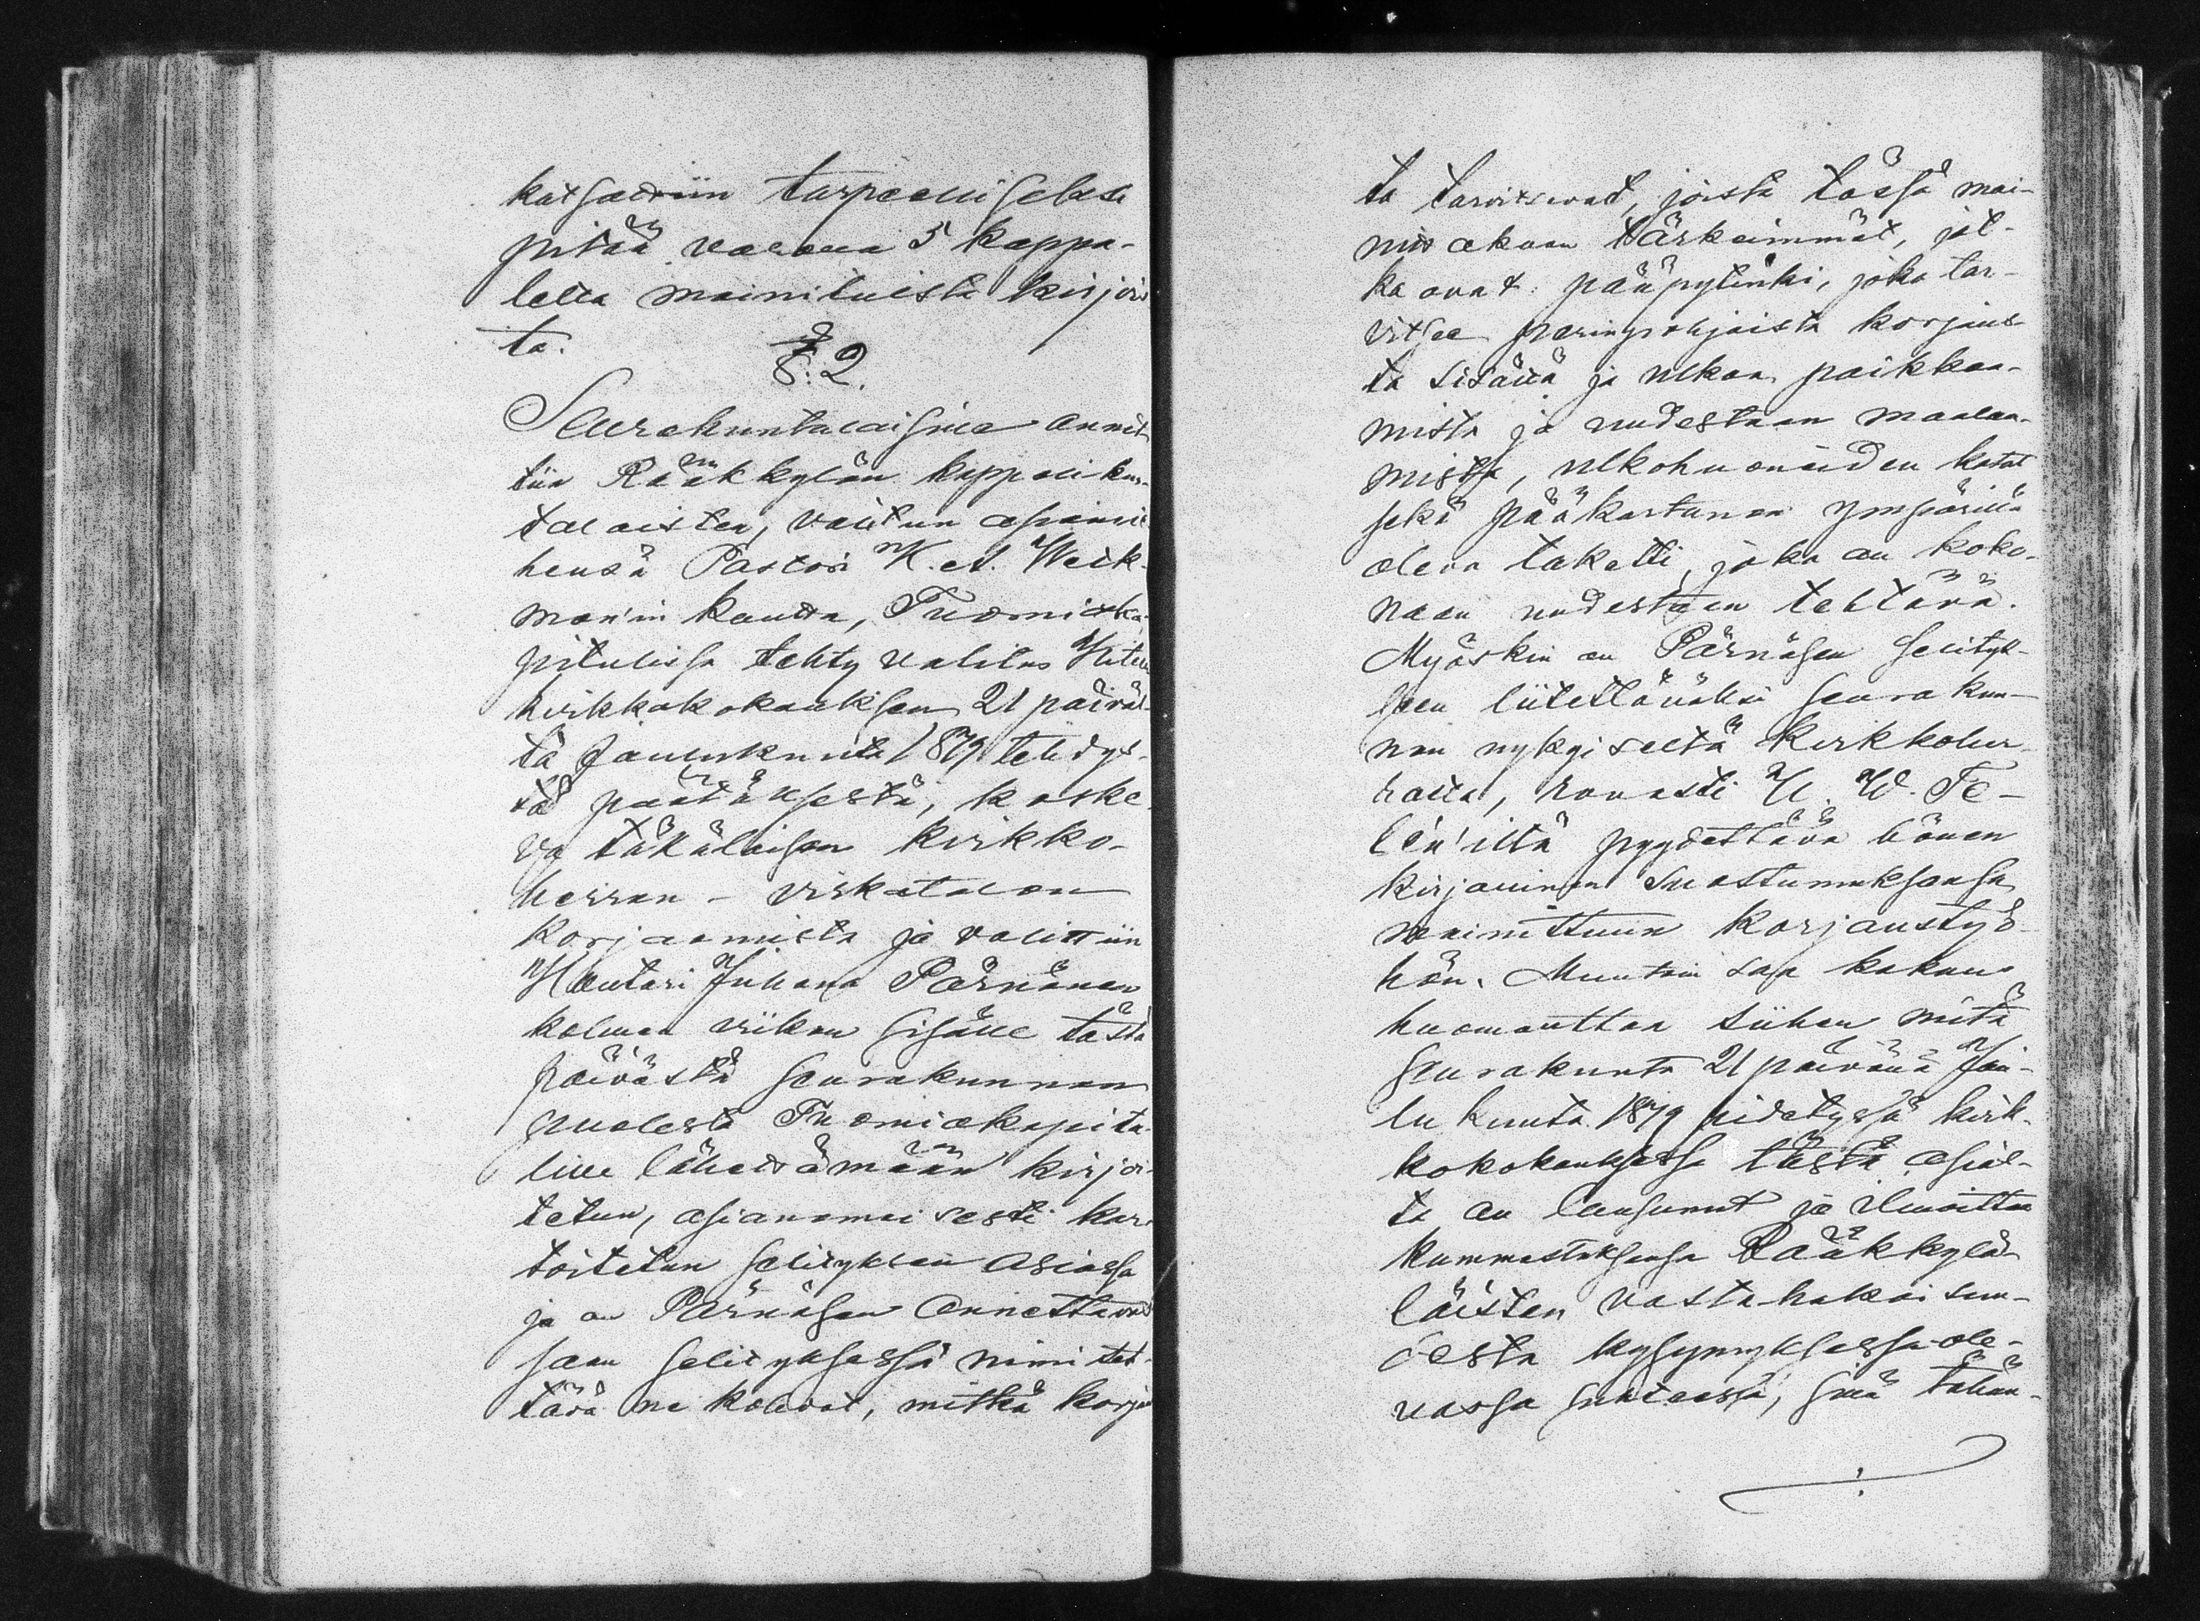 katsottiin tarpeelliseksi
pitää varana 5 kappa-
letta mainituista kirjois
ta.
§: 2.
Seurakuntalaisille annet
tiin Rääkkylän kappelikun-
talaisten, valitun asiamie
hensä Pastori K. A. Weik-
man'in kautta, Tuomioka
pituliissa tehty valitus Kiteen
kirkkokokouksen 21 päiväl-
tä Joulukuuta 1879 tehdys-
tä päätöksestä, koske
va täkäläisen kirkko-
herran-virkatalon
korjaamista ja valittiin
Kanttori Juhana Pärnänen
kolmen viikon sisälle tästä
päivästä seurakunnan
puolesta Tuomiokapitu
liille lähettämään kirjoi-
tetun, asianomaisesti kar-
toitetun selityksen asiassa
ja on Pärnäsen annettavas
saan selityksessä nimitet-
tävä ne kohdat, mitkä korjaus
ta tarvitsevat, joista tässä mai-
nitakoon tärkeimmät, jot-
ka ovat: pääpytinki, joka tar-
vitsee perinpohjaista korjaus-
ta sisältä ja ulkoa, paikkaa-
mista ja uudestaan maalaa-
mista, ulkohuoneiden katot
sekä pääkartanon ympärillä
oleva taketti, joka on koko-
naan uudestaan tehtävä.
Myöskin on Pärnäsen selityk-
seen liitettäväksi seurakun-
nan nykyiseltä kirkkoher-
ralta, rovasti K. W. Te-
lén'iltä pyydettävä hänen
kirjallinen suostumuksensa
mainittuun korjaustyö-
hön. Muutoin saa kokous
huomauttaa siihen mitä
seurakunta 21 päivänä Jou-
lukuuta 1879 pidetyssä kirk-
kokokouksessa tästä asias-
ta on lausunut ja ilmoittaa
kummastuksensa Rääkkylä-
läisten vastahakoisuu-
desta kysymyksessä ole-
vassa suhteessa, sillä tähän-